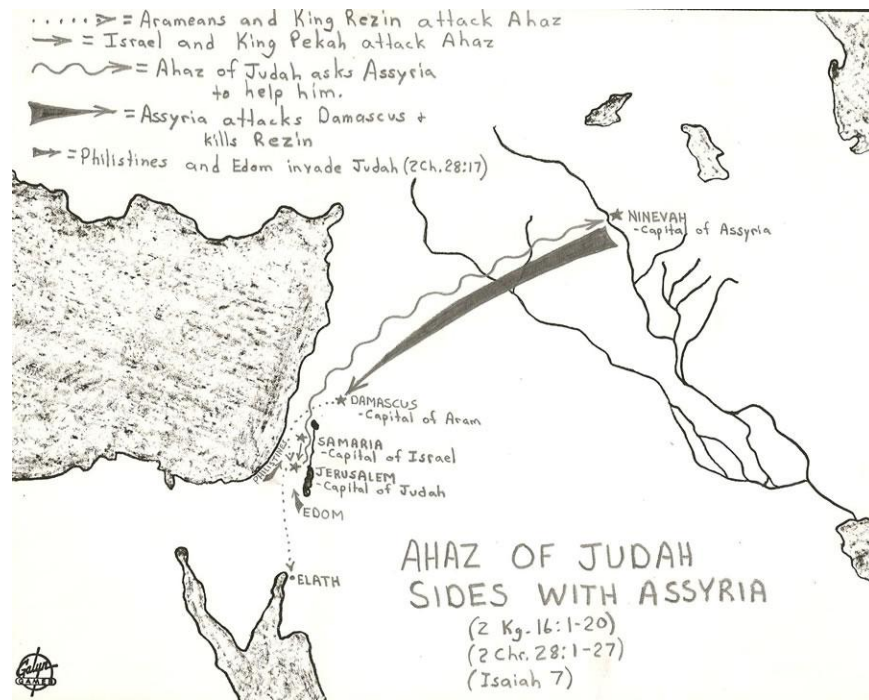 ····▷ = Arameans and King Rezin attack Ahaz
→ = Israel and King Pekah attack Ahaz
= Ahaz of Judah asks Assyria
to help him.
= Assyria attacks Damascus +
kills Rezin
= Philistines and Edom invade Judah (2 Ch. 28:17)
NINEVAH
-Capital of Assyria
DAMASCUS
-Capital of Aram
SAMARIA
-Capital of Israel
PHILISTINES
JERUSALEM
-Capital of Judah
EDOM
ELATH
AHAZ OF JUDAH
SIDES WITH ASSYRIA
(2 Kg. 16:1-20)
(2 Chr. 28:1-27)
(Isaiah 7)
Galyn
GAMES